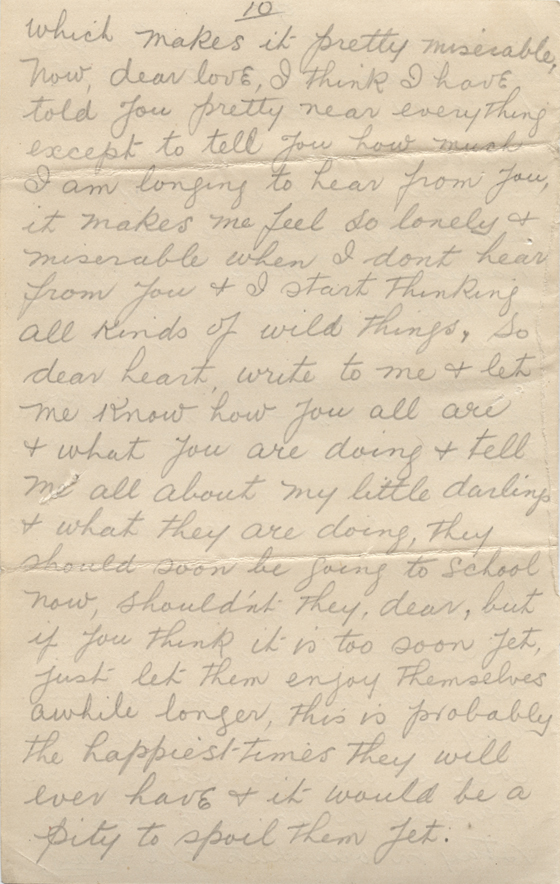 10
which makes it pretty miserable,
Now, dear love, I think I have
told you pretty near everything
except to tell you how much
I am longing to hear from you,
it makes me feel so lonely &
miserable when I dont hear
from you & I start thinking
all kinds of wild things, So
dear heart, write to me & let
me know how you all are
& what you are doing & tell
me all about my little darlings
& what they are doing, they
should soon be going to school
now, should'nt they, dear, but
if you think it is too soon yet,
just let them enjoy themselves
awhile longer, this is probably
the happiest times they will
ever have & it would be a
pity to spoil them yet.